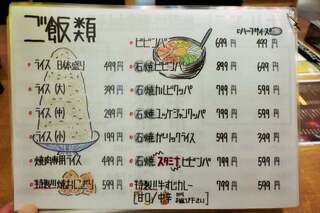 ご飯類
□ハーフサイズ
ライス 日本盛り 499円
ライス(大) 399円
ライス(中) 299円
ライス(小) 199円
焼肉専用ライス 499円
特製!!焼おにぎり 599円
ビビンバ 699円 499円
石焼ビビンバ 899円 699円
石焼カルビクッパ 799円 599円
石焼ユッケジャンクッパ 799円 599円
石焼ガーリックライス 799円 599円
石焼スタミナビビンバ 799円 599円
特製!!牛すじカレー 799円 599円
[甘口/中辛]